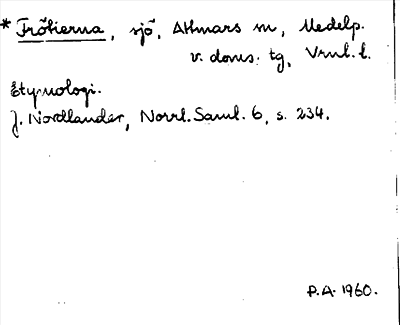 * Frötierna, sjö, Attmars sn, Medelp.
v. doms. tg, Vrnl. l.
Etymologi.
J. Nordlander, Norrl. Saml. 6, s. 234.
P.A. 1960.